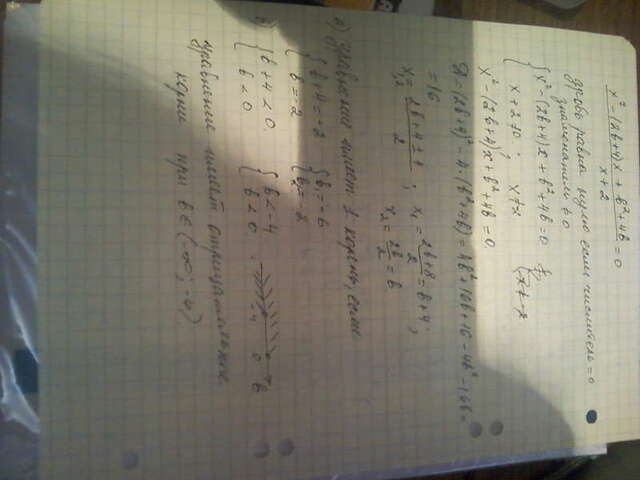 x² - (2b+4)x + b² + 4b / x + 2 = 0
дробь равна нулю если числитель = 0
знаменатель ≠ 0
{ x² - (2b+4)x + b² + 4b = 0
x + 2 ≠ 0; x ≠ -2
x² - (2b+4)x + b² + 4b = 0
Д = (2b+4)² - 4·(b²+4b) = 4b² + 16b + 16 - 4b² - 16b =
= 16
x₁,₂ = 2b+4±4 / 2; x₁ = 2b+8 / 2 = b+4;
x₂ = 2b / 2 = b
а) уравнение имеет 1 корень, если
{ b+4 = -2 { b = -6
b = -2 b = -2
б) { b+4 < 0 { b < -4
b < 0 b < 0 -4 0 b
уравнение имеет отрицательные
корни при b ∈ (-∞; -4)